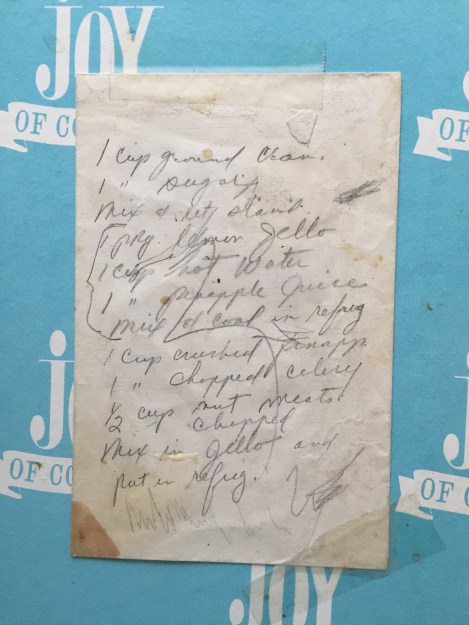 JOY
OF CO
JOY
1 cup ground Cran.
1 " Sugar
Mix & let stand
1 pkg. lemon Jello
1 cup hot Water
1 " Pineapple Juice
Mix & cool in refrig
1 Cup crushed Pinapp
1 " Chopped Celery
1/2 cup nut meats
Chopped
Mix in Jello and
put in refrig.
JO
OF CO
OF CO
JOY